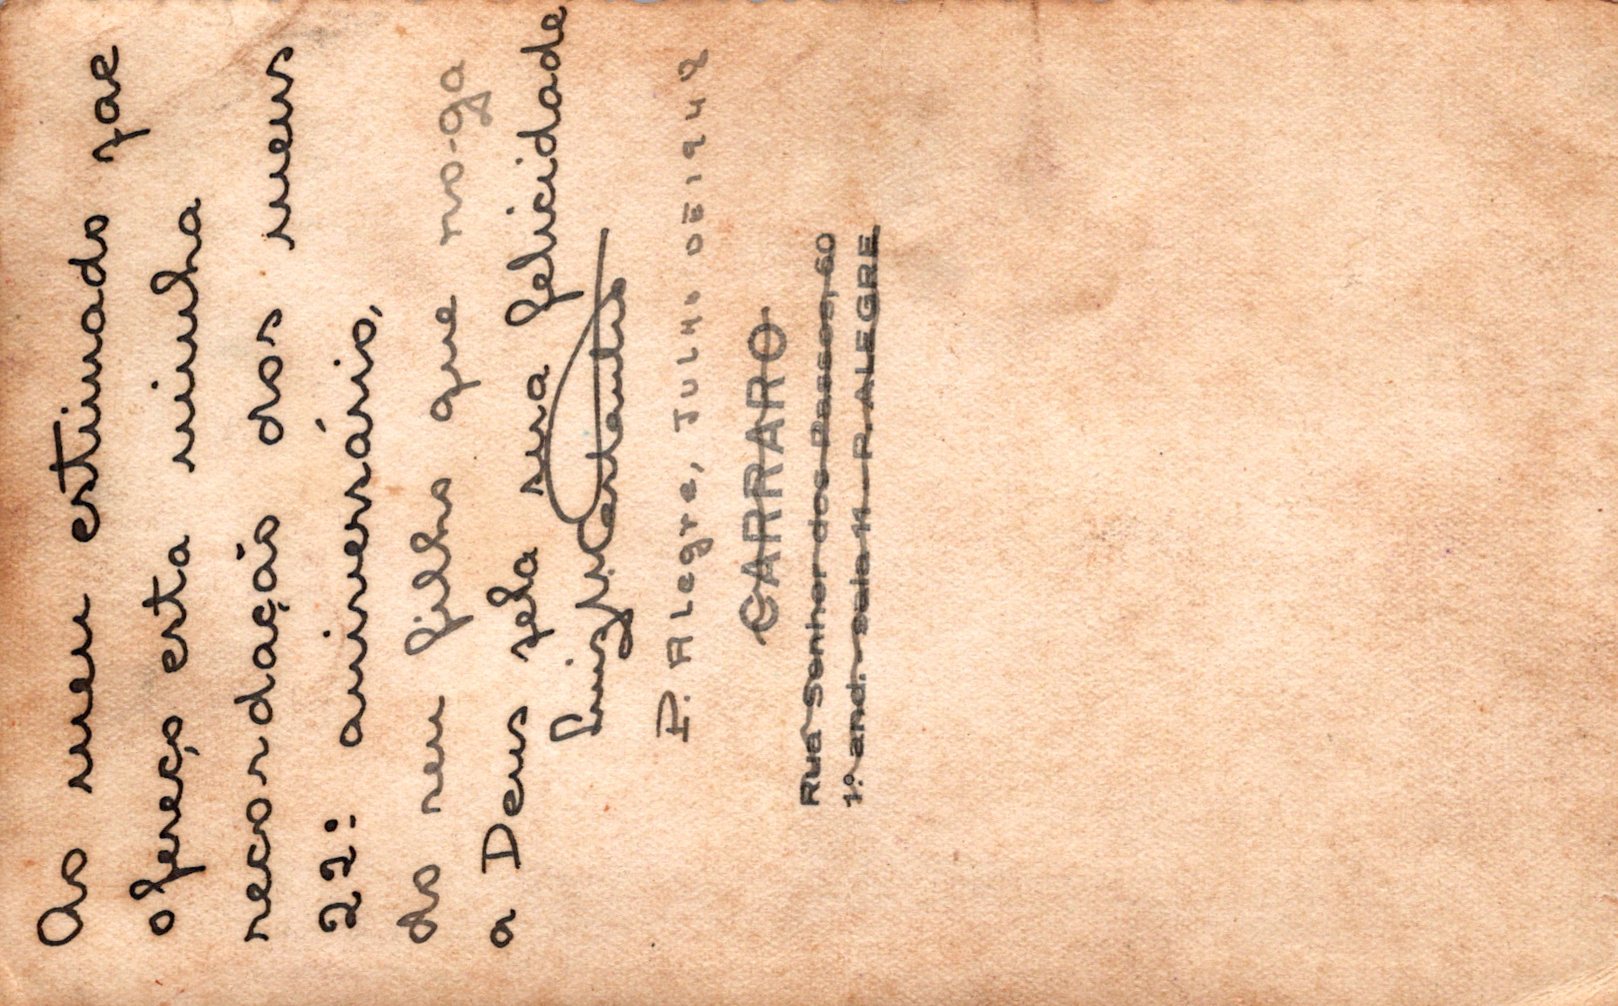 Ao meu estimado pae
ofereço esta minha
recordação dos meus
22: aniversário,
do seu filho que roga
a Deus pela sua felicidade
Luiz
P. Alegre, JULHO DE 1948
CARRARO
Rua Senhor dos Passos, 60
1º and. - sala 11 - P. ALEGRE